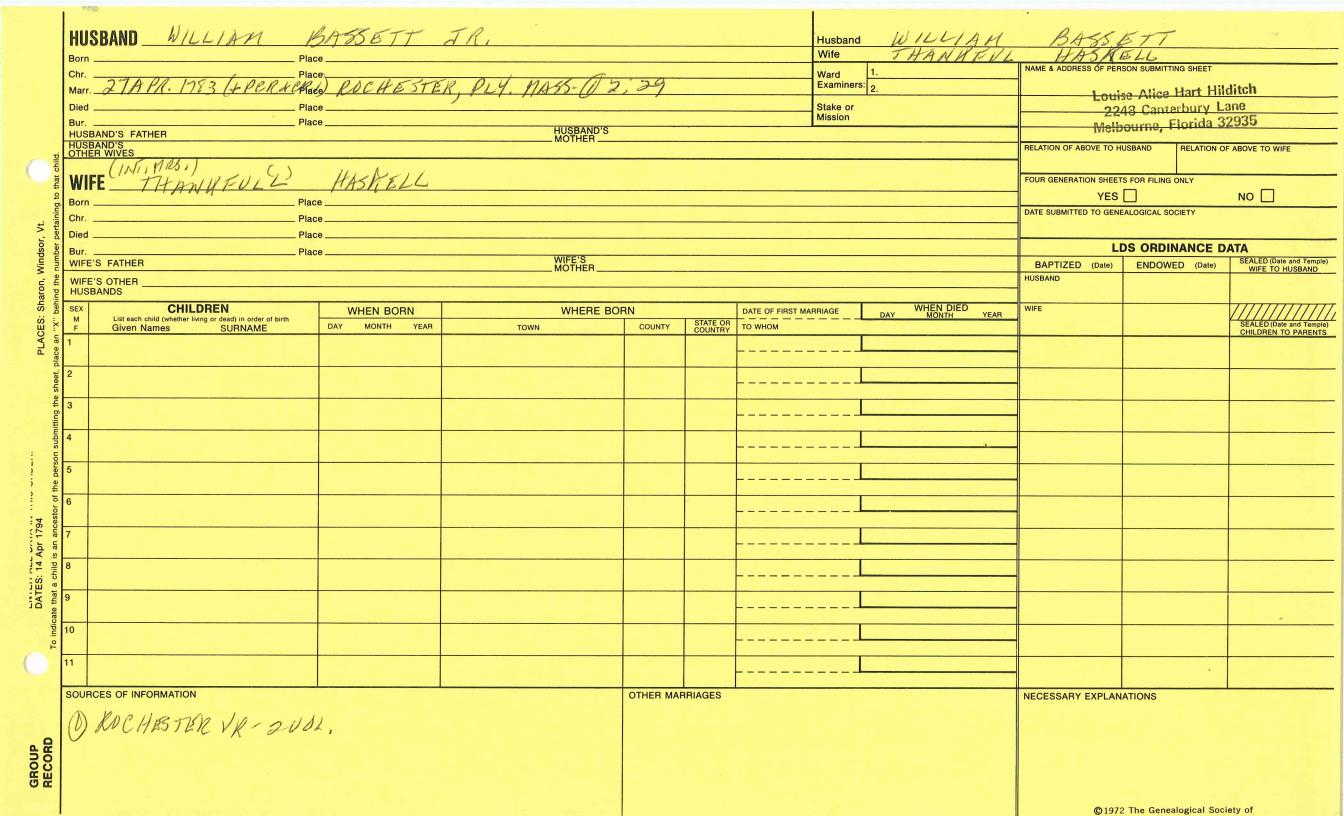 HUSBAND WILLIAM BASSETT JR.
Born Place
Chr. Place
Marr. 27 APR. 1783 Place ROCHESTER, PLY. MASS. ① 2:29
Died Place
Bur. Place
HUSBAND'S FATHER HUSBAND'S MOTHER
HUSBAND'S OTHER WIVES
(INT. MRS.)
WIFE THANKFUL(L) HASKELL
Born Place
Chr. Place
Died Place
Bur. Place
WIFE'S FATHER WIFE'S MOTHER
WIFE'S OTHER HUSBANDS
Husband WILLIAM BASSETT
Wife THANKFUL HASKELL
Ward Examiners: 1.
2.
Stake or Mission
NAME & ADDRESS OF PERSON SUBMITTING SHEET
Louise Alice Hart Hilditch
2248 Canterbury Lane
Melbourne, Florida 32935
RELATION OF ABOVE TO HUSBAND RELATION OF ABOVE TO WIFE
FOUR GENERATION SHEETS FOR FILING ONLY
YES NO
DATE SUBMITTED TO GENEALOGICAL SOCIETY
LDS ORDINANCE DATA
BAPTIZED (Date) ENDOWED (Date) SEALED (Date and Temple) WIFE TO HUSBAND
HUSBAND
WIFE
SEALED (Date and Temple) CHILDREN TO PARENTS
SEX M F
CHILDREN
List each child (whether living or dead) in order of birth
Given Names SURNAME
WHEN BORN
DAY MONTH YEAR
WHERE BORN
TOWN COUNTY STATE OR COUNTRY
DATE OF FIRST MARRIAGE
TO WHOM
WHEN DIED
DAY MONTH YEAR
1
2
3
4
5
6
7
8
9
10
11
SOURCES OF INFORMATION
① ROCHESTER VR - 2 VOL.
OTHER MARRIAGES
NECESSARY EXPLANATIONS
©1972 The Genealogical Society of
PLACES: Sharon, Windsor, Vt.
DATES: 14 Apr 1794
To indicate that a child is an ancestor of the person submitting the sheet, place an "X" behind the number pertaining to that child.
GROUP RECORD